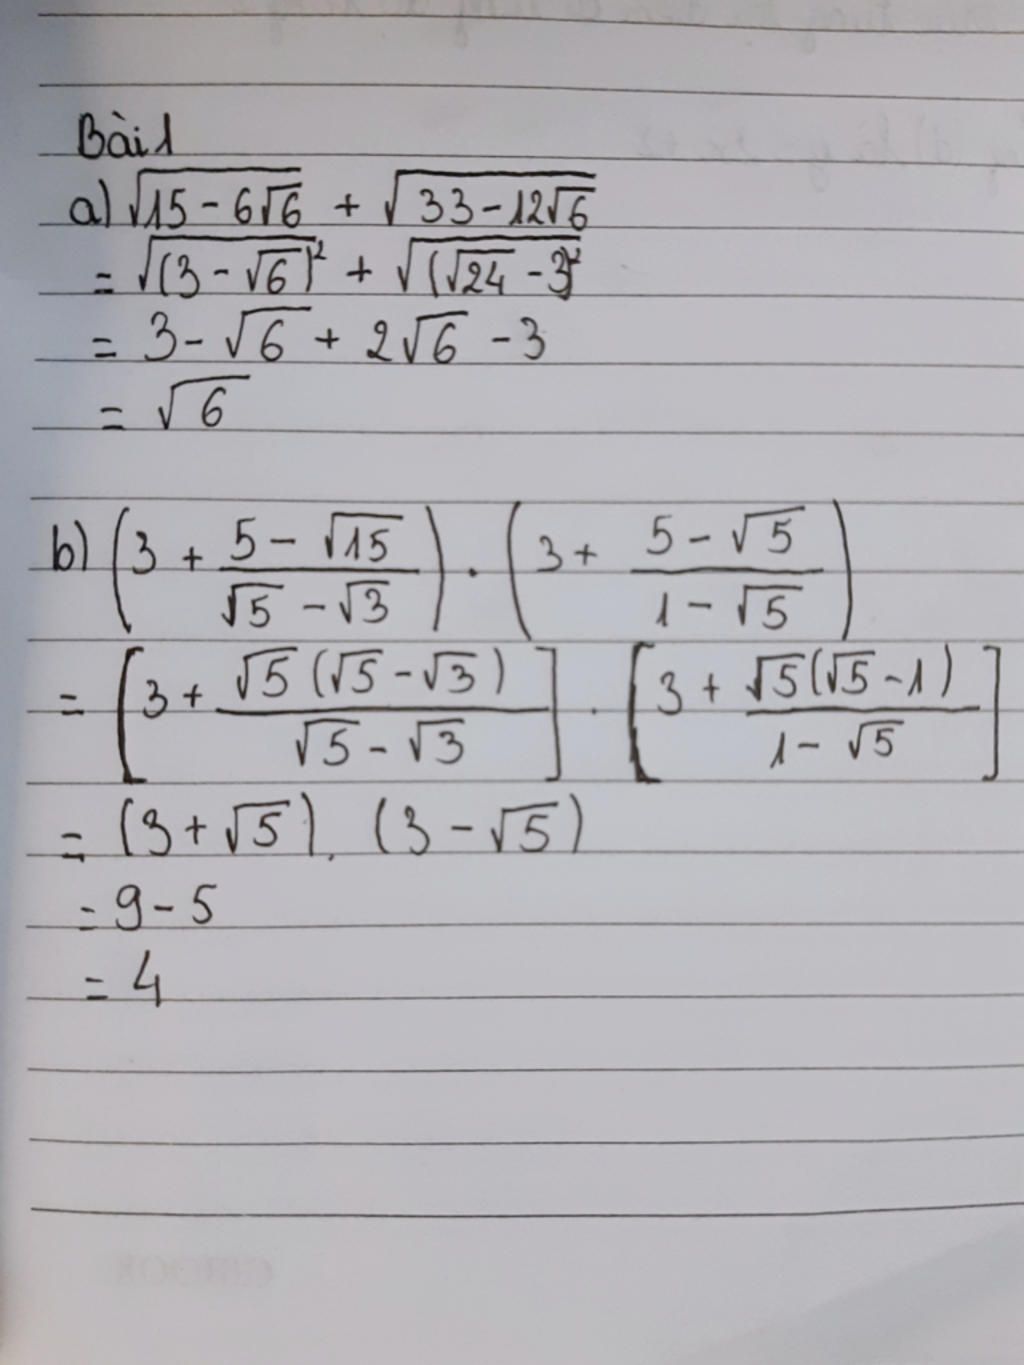 Bài 1
a) √(15 - 6√6) + √(33 - 12√6)
= √((3 - √6)²) + √((√24 - 3)²)
= 3 - √6 + 2√6 - 3
= √6
b) (3 + (5 - √15)/(√5 - √3)) . (3 + (5 - √5)/(1 - √5))
= [3 + √5(√5 - √3)/(√5 - √3)] . [3 + √5(√5 - 1)/(1 - √5)]
= (3 + √5). (3 - √5)
= 9 - 5
= 4